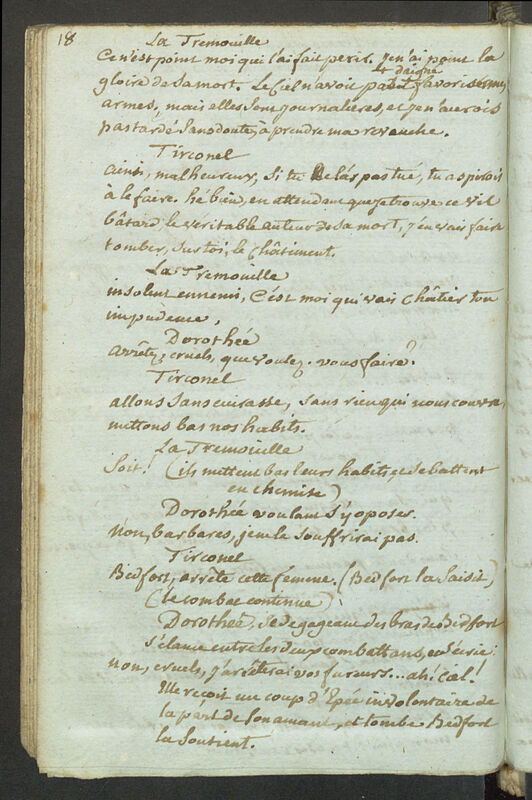 18
La Tremouille
Ce n'est point moi qui l'ai fait perir. je n'ai point la
gloire de sa mort. Le Ciel n'avoit pas daigné favoriser mes
armes, mais elles sont journalières, et je n'aurois
pas tardé sans doute, à prendre ma revanche.
Tirconel
ainsi, malheureux, si tu ne l'as pas tué, tu aspirois
à le faire. hé bien, en attendant que je trouve ce vil
bâtard, le véritable auteur de sa mort, j'en vais faire
tomber, sur toi, le châtiment.
La Tremouille
insolent ennemi, C'est moi qui vais châtier ton
impudence,
Dorothée
arrêtez, cruels, que voulez-vous faire?
Tirconel
allons sans cuirasse, sans rien qui nous couvre,
mettons bas nos habits.
La Tremouille
Soit! (ils mettent bas leurs habits, et se battent
en chemise)
Dorothée voulant s'y oposer.
non, barbares, je ne le souffrirai pas.
Tirconel
Bedfort, arrête cette femme. (Bedfort la saisit)
(le combat continue)
Dorothée, se dégageant des bras de Bedfort
s'élance entre les deux combattans, en s'écrie:
non, cruels, j'arrêterai vos fureurs... ah! ciel!
Elle reçoit un coup d'Epée involontaire de
la part de son amant, et tombe. Bedfort
la soutient.